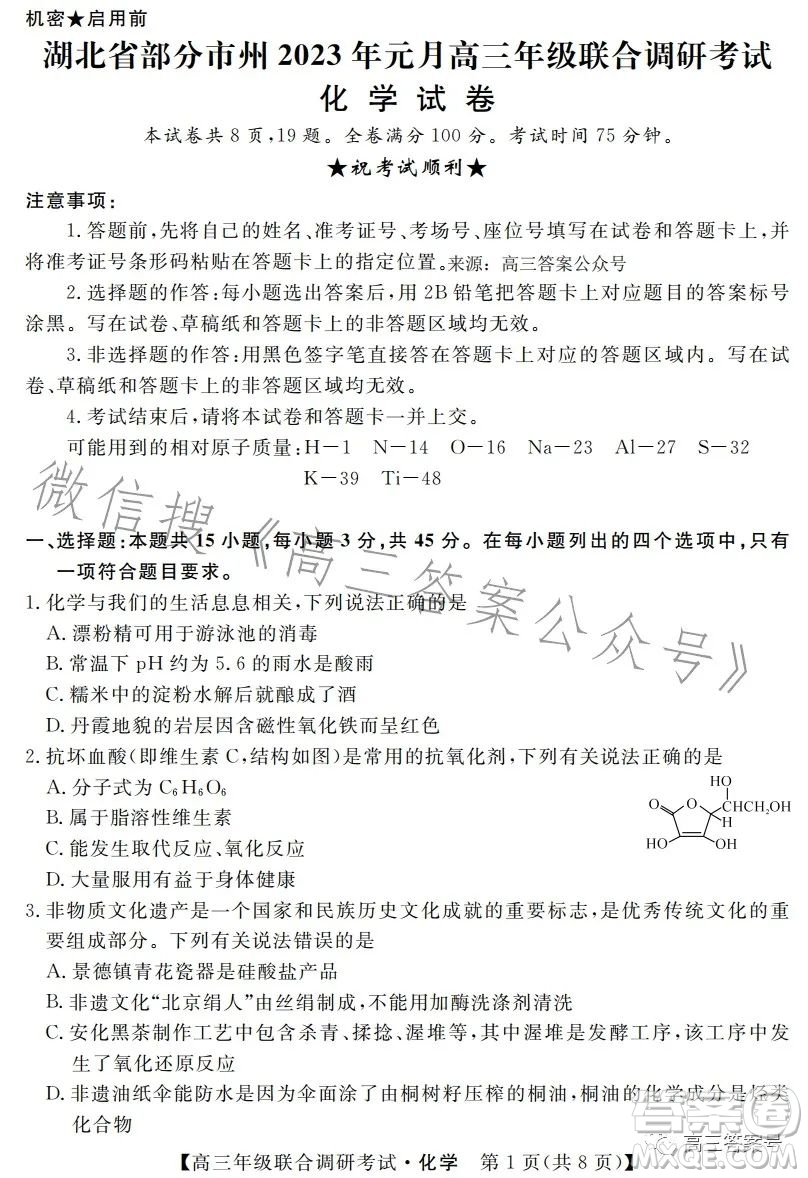 机密★启用前
湖北省部分市州 2023 年元月高三年级联合调研考试
化 学 试 卷
本试卷共 8 页,19 题。全卷满分 100 分。考试时间 75 分钟。
★祝考试顺利★
注意事项:
1. 答题前,先将自己的姓名、准考证号、考场号、座位号填写在试卷和答题卡上,并
将准考证号条形码粘贴在答题卡上的指定位置。来源:高三答案公众号
2. 选择题的作答:每小题选出答案后,用 2B 铅笔把答题卡上对应题目的答案标号
涂黑。写在试卷、草稿纸和答题卡上的非答题区域均无效。
3. 非选择题的作答:用黑色签字笔直接答在答题卡上对应的答题区域内。写在试
卷、草稿纸和答题卡上的非答题区域均无效。
4. 考试结束后,请将本试卷和答题卡一并上交。
可能用到的相对原子质量:H—1 N—14 O—16 Na—23 Al—27 S—32
K—39 Ti—48
微信搜《高三答案公众号》
一、选择题:本题共 15 小题,每小题 3 分,共 45 分。在每小题列出的四个选项中,只有
一项符合题目要求。
1. 化学与我们的生活息息相关,下列说法正确的是
A. 漂粉精可用于游泳池的消毒
B. 常温下 pH 约为 5.6 的雨水是酸雨
C. 糯米中的淀粉水解后就酿成了酒
D. 丹霞地貌的岩层因含磁性氧化铁而呈红色
2. 抗坏血酸(即维生素 C,结构如图)是常用的抗氧化剂,下列有关说法正确的是
A. 分子式为 C₆H₆O₆
B. 属于脂溶性维生素
C. 能发生取代反应、氧化反应
D. 大量服用有益于身体健康
HO
O
O
CHCH₂OH
H
HO
OH
3. 非物质文化遗产是一个国家和民族历史文化成就的重要标志,是优秀传统文化的重
要组成部分。下列有关说法错误的是
A. 景德镇青花瓷器是硅酸盐产品
B. 非遗文化“北京绢人”由丝绢制成,不能用加酶洗涤剂清洗
C. 安化黑茶制作工艺中包含杀青、揉捻、渥堆等,其中渥堆为发酵工序,该工序中发
生了氧化还原反应
D. 非遗油纸伞能防水是因为伞面涂了由桐树籽压榨的桐油,桐油的化学成分是烃类
化合物
答案圈
高三答案号
【高三年级联合调研考试·化学 第 1 页(共 8 页)】